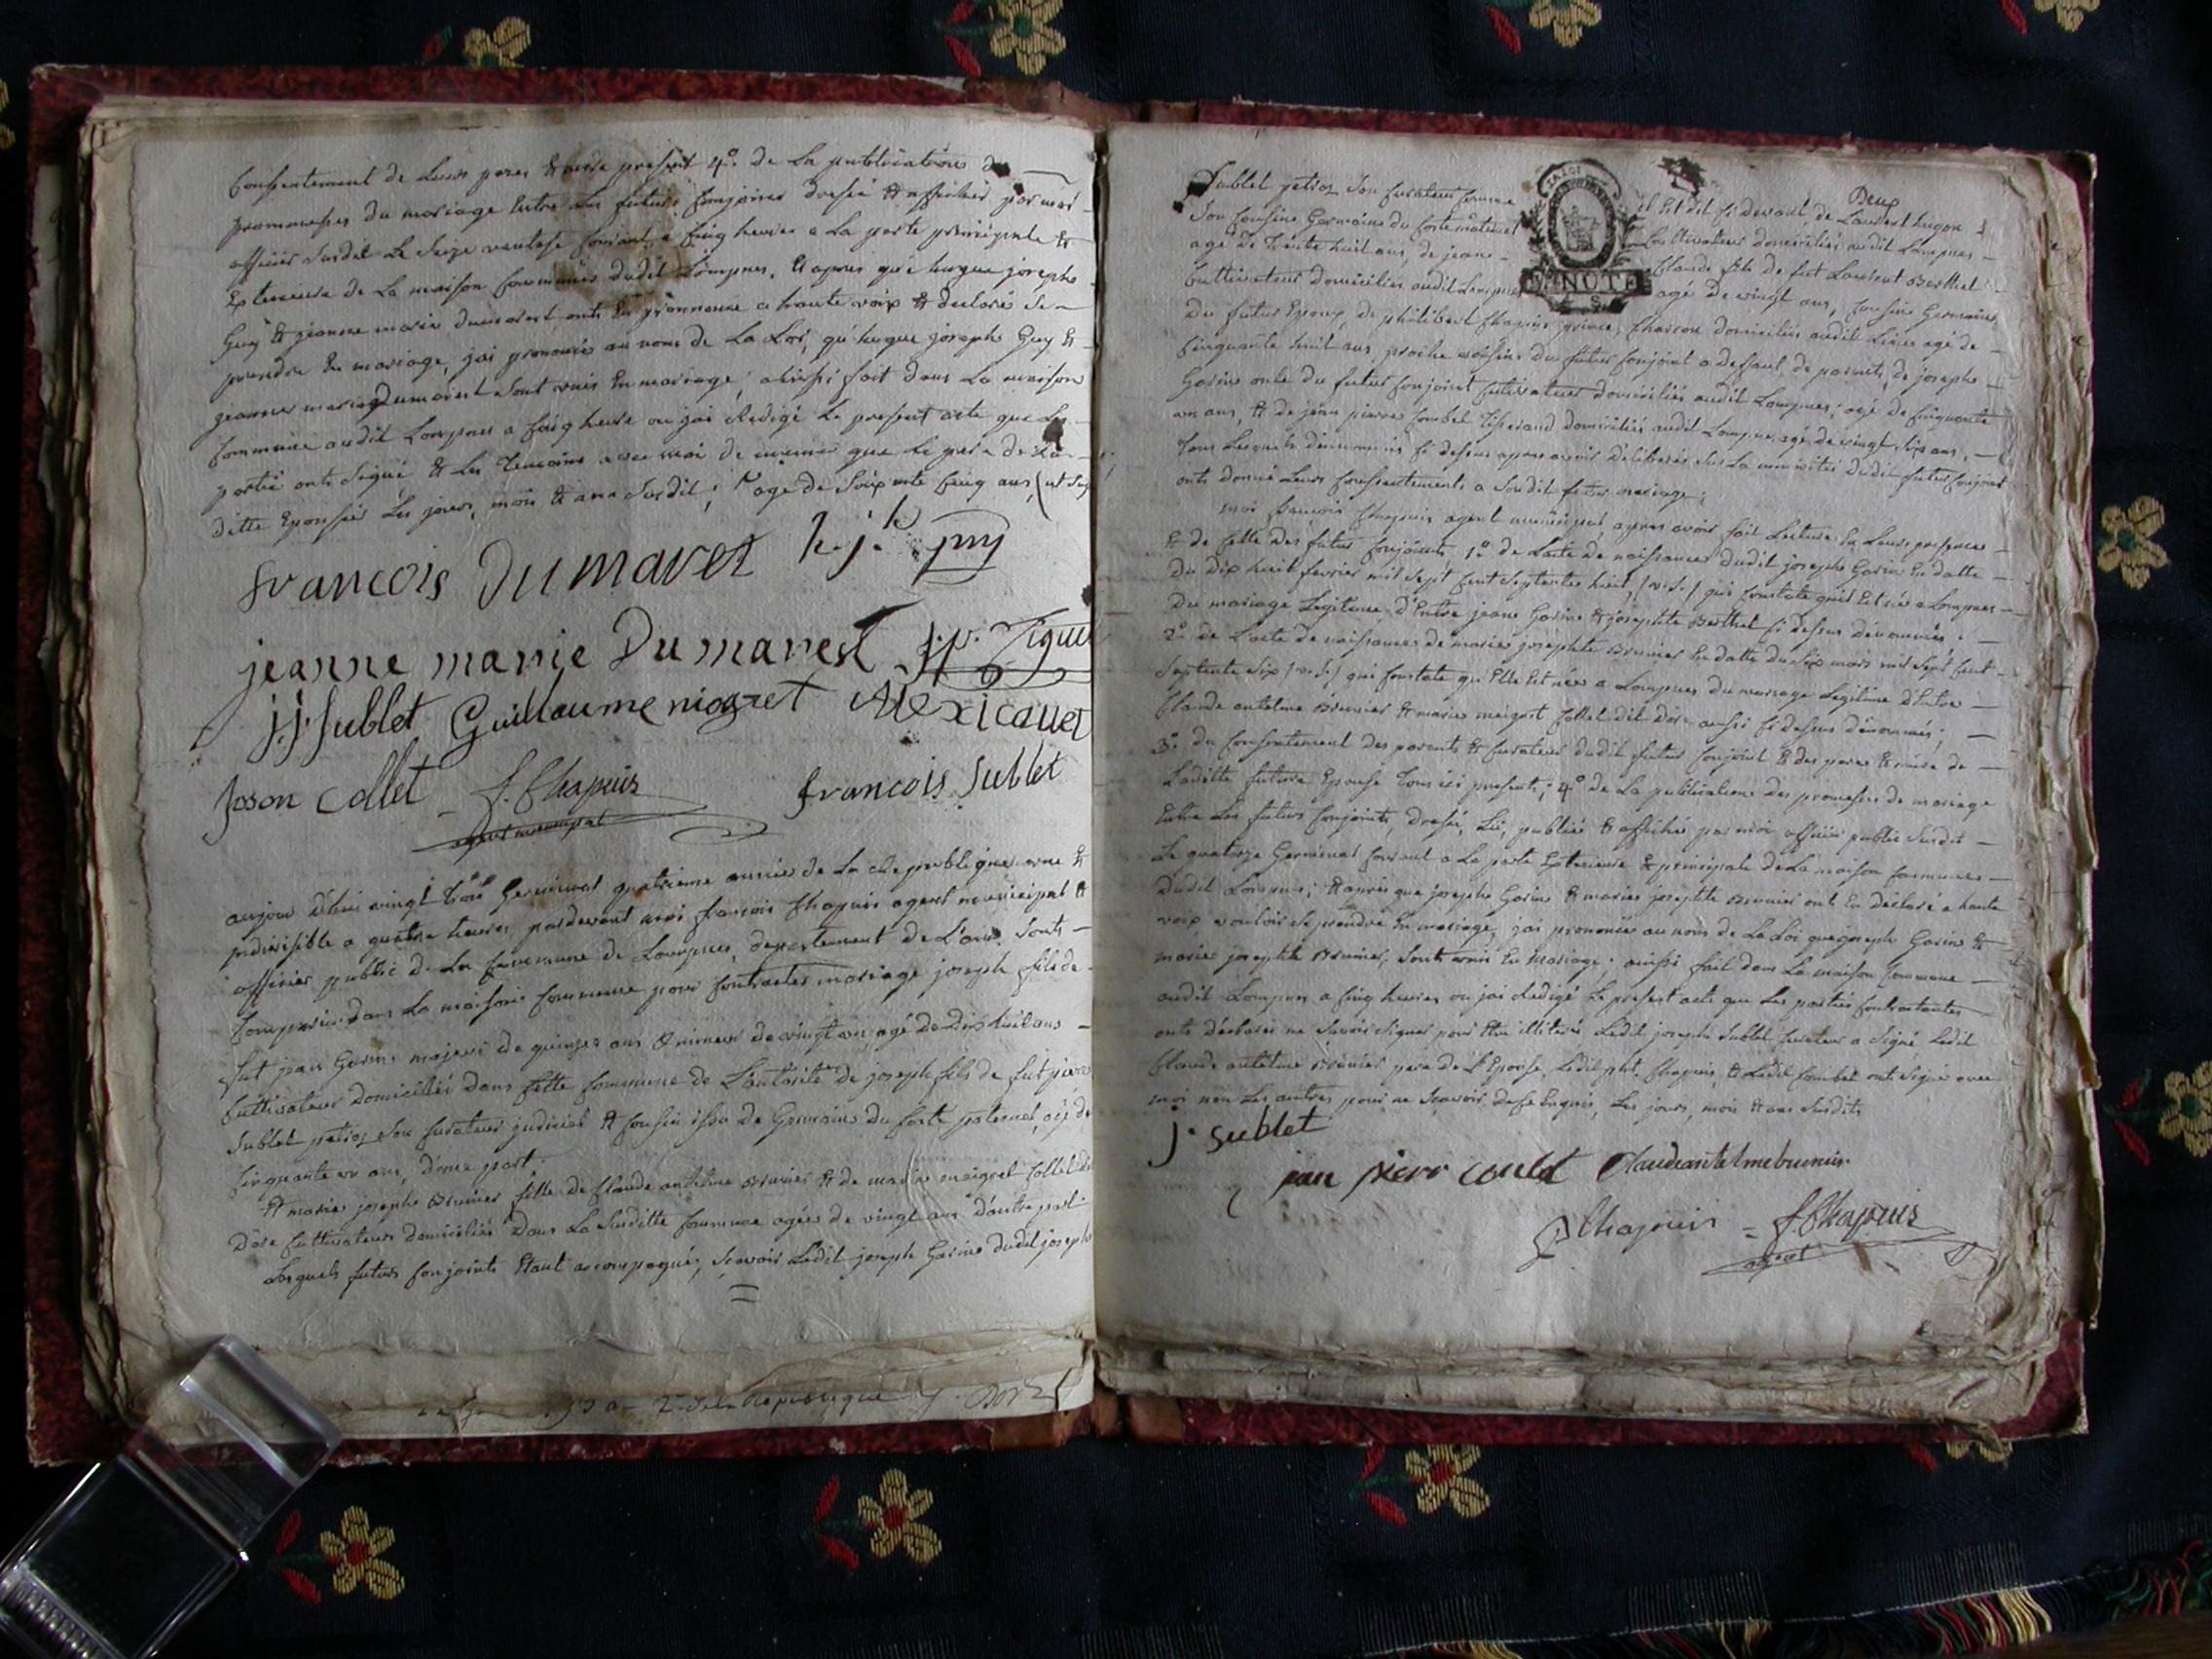 Consentement de Leurs peres & mere present 4.° de La publications de
prommesses du mariage Entre Les futurs Conjoints dressé & affichés par moi
officier Susdit Le Seize ventose Courant a Cinq heures a La porte principale &
Exterieure de La maison Commune dudit Lompnes, & apres que hugue joseph
Guy & jeanne marie dumarest ont En prononcé a haute voix & declaré Se
prendre En mariage, jai prononcé au nom de La Loi, qu'hugue joseph Guy &
jeanne marie Dumarest Sont unis En mariage, ainssi fait dans La maison
Commune audit Lompnes a Cinq heure ou jai Redigé Le present acte que Les
partie ont Signé & Les Temoins avec moi de mesme que Le pere de La
ditte Epousée Les jours, mois & an Susdit; agé de Soixante Cinq ans
francois Dumaret h.j. guy
jeanne marie Dumarest
j.j. Sublet Guillaume niogret
joson Collet f. Chapuis francois Sublet
agent municipal
aujour d'hui vingt trois Germinal quatrieme année de La Republique une &
jndivisible a quatre heures, pardevant moi francois Chapuis agent municipal &
officier public de La Commune de Lompnes, departement de L'ain, Sonts
Comparus dans La maison Commune pour Contracter mariage joseph fils de
fut jean Garin majeur de quinze ans & mineur de vingt un agé de Dix huit ans
Cultivateur domicilié dans Cette Commune de L'autorité de joseph fils de fut pierre
Sublet petioz Son Curateur judiciel & Cousin issu de Germains du Coste paternel, agé de
Cinquante un ans, d'une part.
& marie joseph Brunier fille de Claude antelme Brunier & de marie maigret Collet dit
Dore Cultivateurs domiciliés Dans La Susditte Commune agée de vingt ans D'autre part
Lesquels futurs Conjoints Etant accompagnés, Scavoir Ledit joseph Garin dudit joseph
2.e de la Republique
Deux
Sublet petioz Son Curateur Comme il Est dit Ci devant de Laurent hugon
Son Cousin Germain du Coste maternel Cultivateur domicilié audit Lompnes
agé de Trente huit ans, de jean Claude fils de fut Laurent Berthet
Cultivateur domicilié audit Lompnes agé de vingt ans, Cousin Germain
du futur Epoux, de philibert Chapuis Charron domicilié audit Lieu agé de
Cinquante huit ans, proche voisin du futur Conjoint a deffaut de parents, de joseph
Garin oncle du futur Conjoint Cultivateur domicilié audit Lompnes, agé de Cinquante
un ans, & de jean pierre Combet Tisserand domicilié audit Lompnes agé de vingt Six ans,
Tous Lesquels denommés Ci dessus apres avoir déliberés Sur La minorité dudit futur Conjoint
ont donné Leurs Consentements a Sondit futur mariage;
moi francois Chapuis agent municipal, apres avoir fait Lecture En Leurs presences
& de Celle Des futurs Conjoints 1.° de L'acte de naissance dudit joseph Garin En datte
du Dix huit fevrier mil Sept Cent Septente huit, (v.S.) qui Constate qu'il Est né a Lompnes
du mariage Legitime d'Entre jean Garin & josephte Berthet Ci dessus dénommés;
2.° de L'acte de naissance de marie josephte Brunier En datte du Six mars mil Sept Cent
Septente Six (v.S.) qui Constate qu'Elle Est née a Lompnes du mariage Legitime d'Entre
Claude antelme Brunier & marie maigret Collet dit Dore aussi Ci dessus dénommés;
3.° du Consentement des parents & Curateur dudit futur Conjoint & des pere & mere de
Laditte future Epouse Tous ici presents; 4.° de La publications des promesses de mariage
Entre Les futurs Conjoints, dressé, Lû, publiée & affiché par moi officier public Susdit
Le quatorze Germinal Courant a La porte Exterieure & principale de La maison Commune
dudit Lompnes; & après que joseph Garin & marie josephte Brunier ont En déclaré a haute
voix vouloir Se prendre En mariage, jai prononcé au nom de La Loi que joseph Garin &
marie josephte Brunier, Sont unis En Mariage; ainssi fait dans La maison Commune
audit Lompnes a Cinq heures ou jai Redigé Le present acte que Les parties Contractantes
onts déclarés ne Savoir Signer pour Etre illiterés, Ledit joseph Sublet Curateur a Signé Ledit
Claude antelme Brunier pere de L'Epouse, Ledit pht. Chapuis, & Ledit Combet ont Signé avec
moi non Les autres pour ne Scavoir de Ce Enquis, Les jours, mois & an Susdits
j. Sublet
jean pierr Combet Claudeantelmebrunier
P Chapuis = f. Chapuis
agent